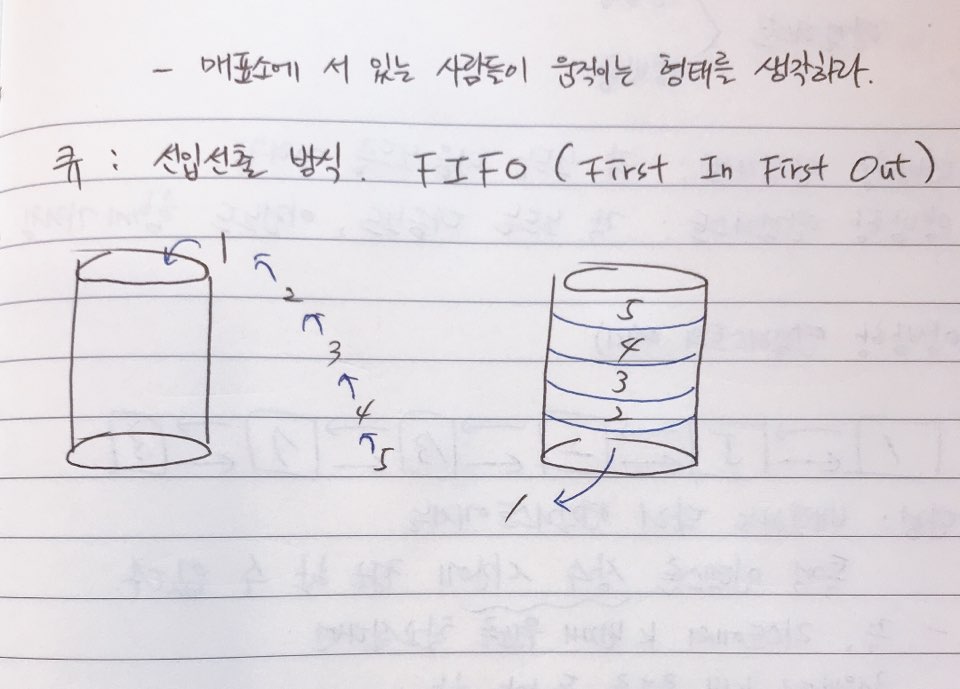 - 매표소에 서 있는 사람들이 움직이는 형태를 생각하라.
큐 : 선입선출 방식. FIFO (First In First Out)
1
2
3
4
5
5
4
3
2
1